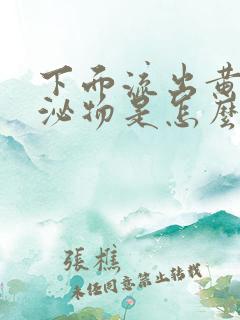 下而流出黄
泌物是怎麽
張樵
未经同意禁止转载